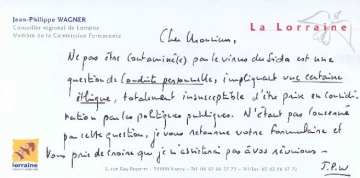 Jean-Philippe WAGNER
Conseiller régional de Lorraine
Membre de la Commission Permanente
La Lorraine
Cher Monsieur,
Ne pas être contaminé(e) par le virus du Sida est une
question de Conduite personnelle, impliquant une certaine
éthique, totalement insusceptible d'être prise en considé-
ration par les politiques publiques. N'étant pas concerné
par cette question, je vous retourne votre formulaire et
Vous prie de croire que je n'assisterai pas à vos réunions -
J.P.W
lorraine